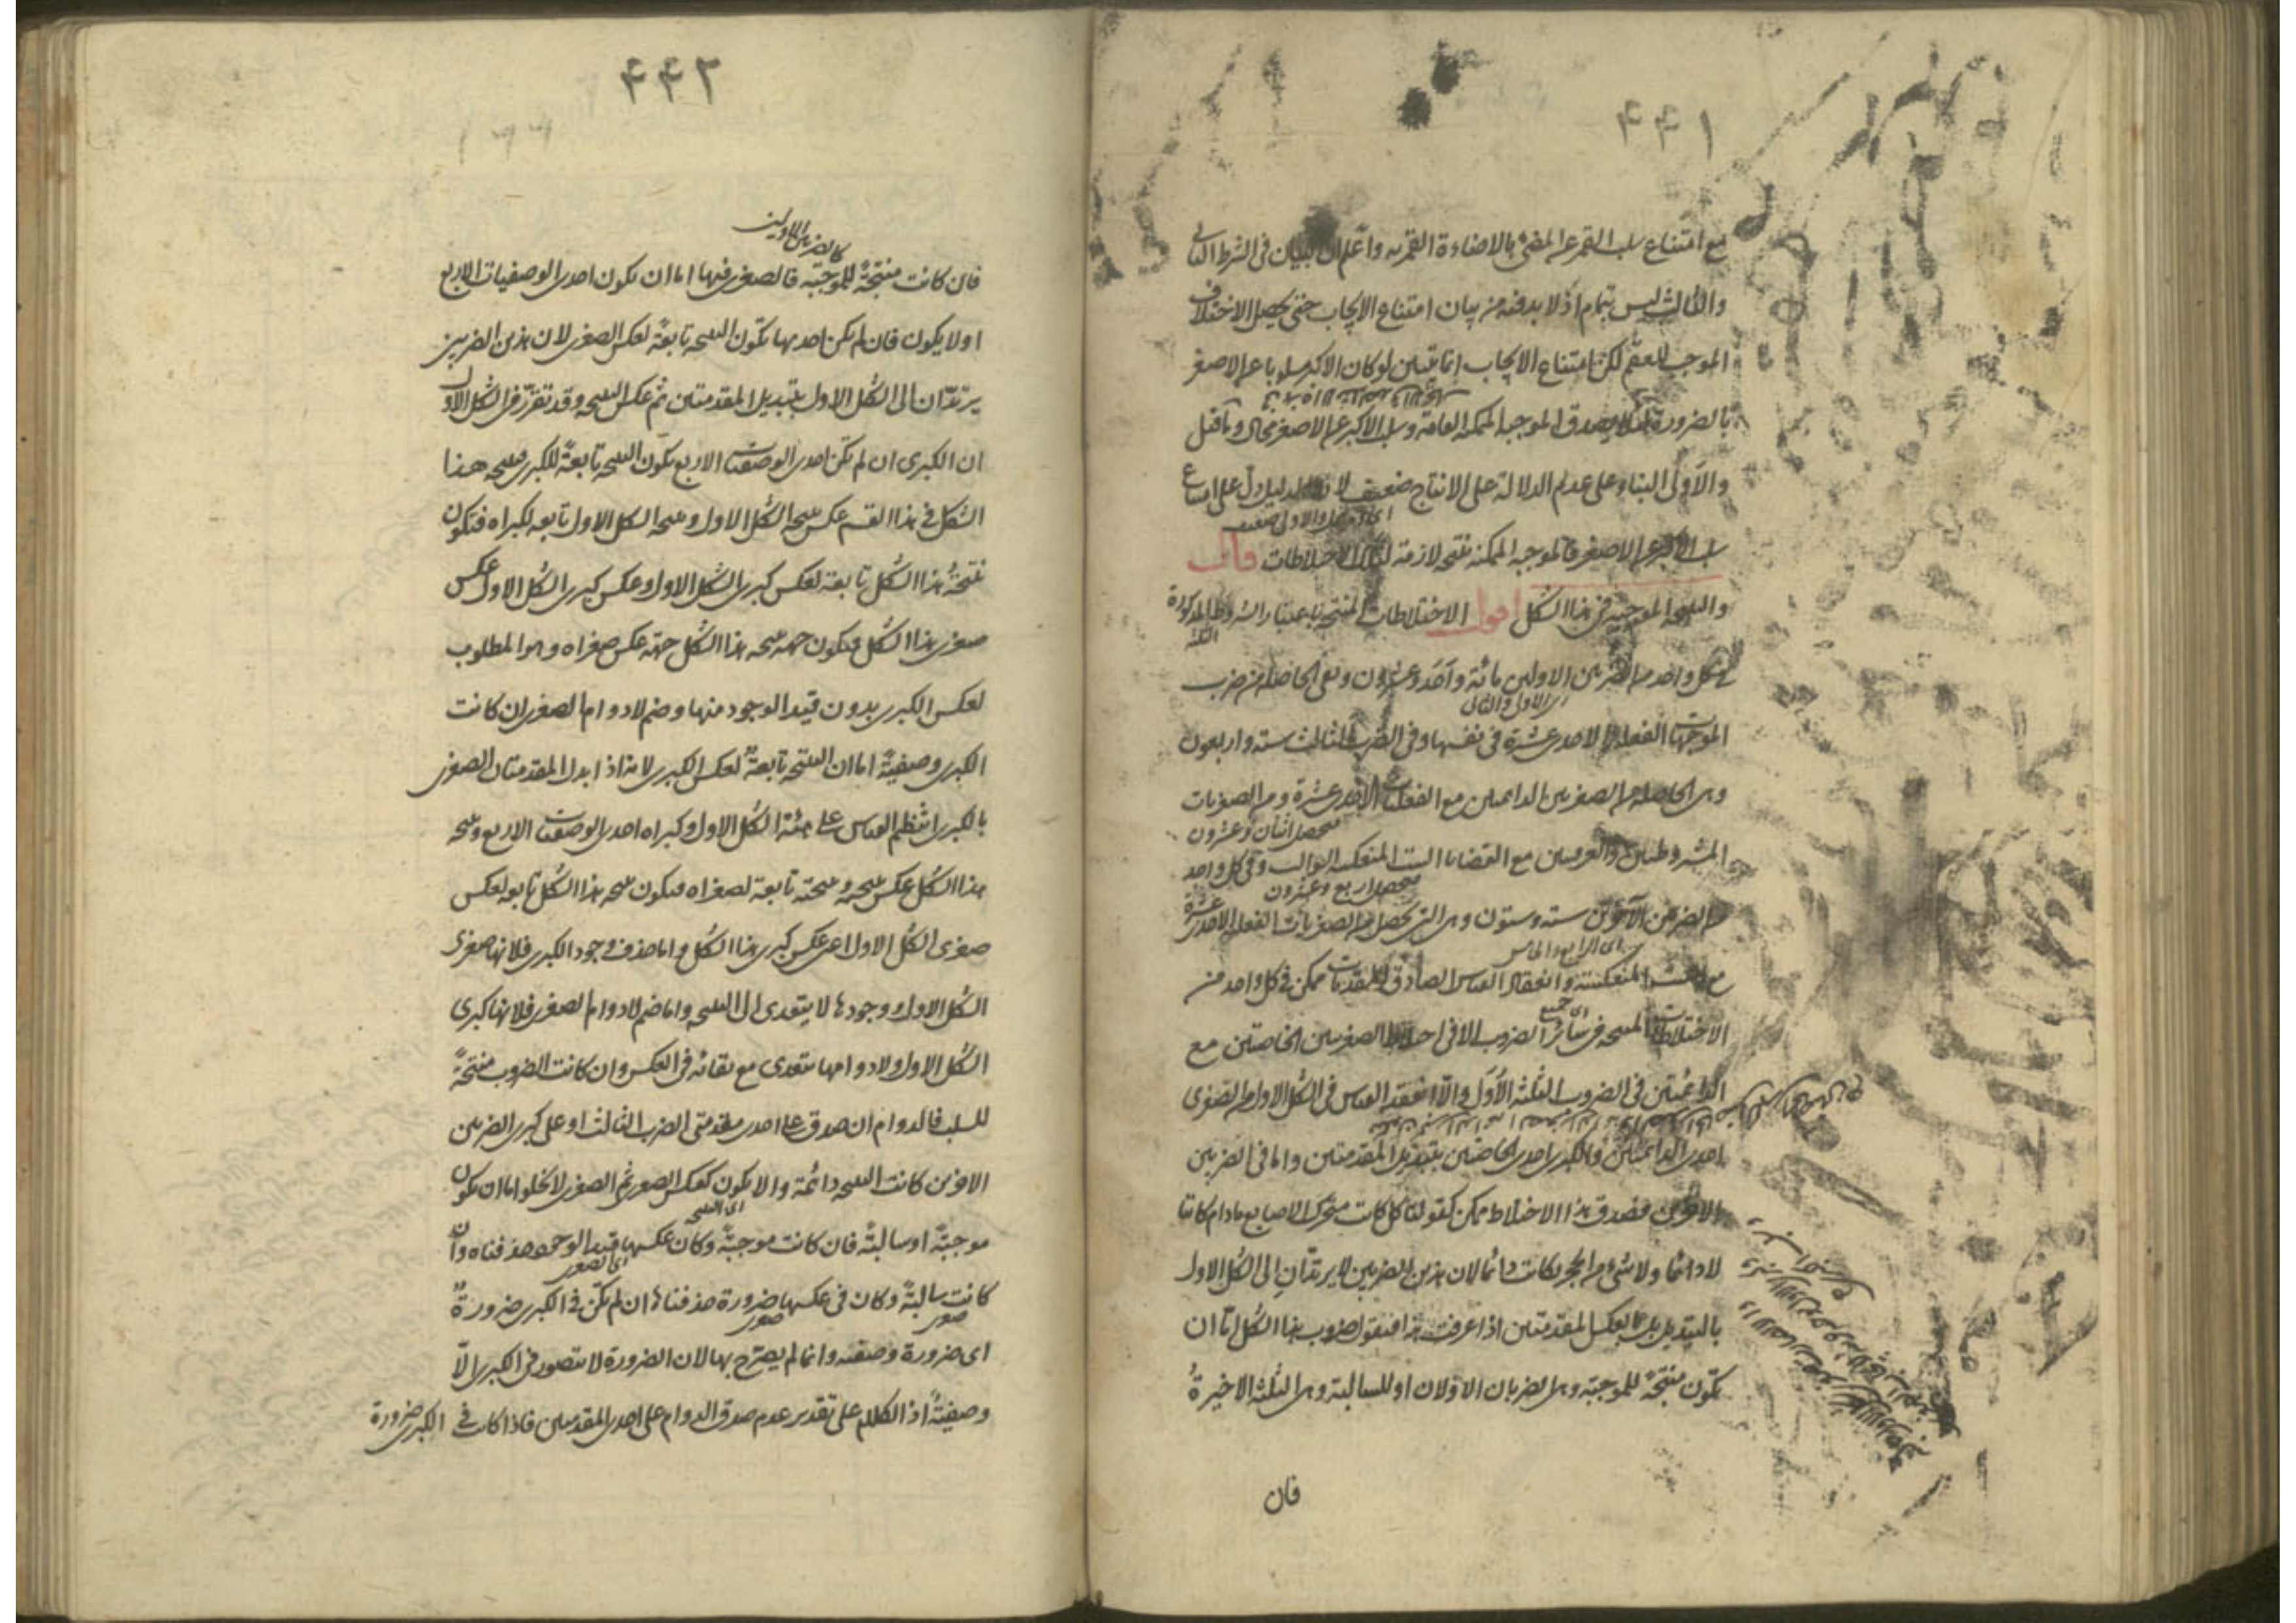 ٤٤١
مع امتناع سلب القمر عن المضئ بالاضاءة القمرية واعلم ان البيان فى الشرط الثانى
والثالث ليس بتمام اذ لا بد فيه من بيان امتناع الايجاب حتى يحصل الاختلاف
الموجب للعقم لكن امتناع الايجاب انما يتبين لو كان الاكبر مسلوبا عن الاصغر
بالضرورة يصدق الموجبة الممكنة العامة وسلب الاكبر عن الاصغر محال وما قيل
والاولى البناء على عدم الدلالة على الانتاج ضعيف لان الدليل دل على امتناع
سلب الاكبر عن الاصغر فالموجبة الممكنة نتيجة لازمة لتلك الاختلاطات قال
والنتيجة الموجبة فى هذا الشكل اقول الاختلاطات المنتجة باعتبار الشروط المذكورة
لكل واحد من الضربين الاولين مائة واحد وعشرون وهى الحاصلة من ضرب
اى الاول والثانى
الموجهات الفعلية الاحدى عشرة فى نفسها وفى الضرب الثالث ستة واربعون
وهى الحاصلة من الصغريين الدائمتين مع الفعليات الاحدى عشرة ومن الصغريات
يحصل اثنان وعشرون
المشروطتين والعرفيتين مع القضايا الست المنعكسة السوالب وفى كل واحد
يحصل اربع وعشرون
من الضربين الآخرين ستة وستون وهى التى تحصل من الصغريات الفعلية الاحدى عشرة
اى الرابع والخامس
مع الست المنعكسة وانعقاد القياس الصادق المقدمات ممكن فى كل واحد من
اى جميع
الاختلاطات المنتجة فى سائر الضروب الا فى اختلاط الصغريين الخاصتين مع
الدائمتين فى الضروب الثلثة الاول والا انعقد القياس فى الشكل الاول من الصغرى
احدى الدائمتين والكبرى احدى الخاصتين بتبديل المقدمتين واما فى الضربين
الاخيرين فصدق هذا الاختلاط ممكن كقولنا كل كاتب متحرك الاصابع مادام كاتبا
لا دائما ولا شئ من الحجر بكاتب دائما لان هذين الضربين لا يرتدان الى الشكل الاول
بالتبديل بل بعكس المقدمتين اذا عرفت هذا فنقول ضروب هذا الشكل اما ان
تكون منتجة للموجبة وهى الضربان الاولان او للسالبة وهى الثلثة الاخيرة
فان
٤٤٢
كالضربين الاولين
فان كانت منتجة للموجبة فالصغرى فيها اما ان تكون احدى الوصفيات الاربع
او لا يكون فان لم يكن احديها تكون النتيجة تابعة لعكس الصغرى لان هذين الضربين
يرتدان الى الشكل الاول بتبديل المقدمتين ثم عكس النتيجة وقد تقرر فى الشكل الاول
ان الكبرى ان لم تكن احدى الوصفيات الاربع تكون النتيجة تابعة للكبرى فنتيجة هذا
الشكل فى هذا القسم عكس نتيجة الشكل الاول ونتيجة الشكل الاول تابعة لكبراه فتكون
نتيجة هذا الشكل تابعة لعكس كبرى الشكل الاول وعكس كبرى الشكل الاول عكس
صغرى هذا الشكل فتكون جهة نتيجة هذا الشكل جهة عكس صغراه وهو المطلوب
لعكس الكبرى بدون قيد الوجود منها وضم لادوام الصغرى ان كانت
الكبرى وصفية اما ان النتيجة تابعة لعكس الكبرى لانه اذا ابدل المقدمتان الصغرى
بالكبرى انتظم القياس على هيئة الشكل الاول وكبراه احدى الوصفيات الاربع ونتيجة
هذا الشكل عكس نتيجة ونتيجته تابعة لصغراه فتكون نتيجة هذا الشكل تابعة لعكس
صغرى الشكل الاول اعنى عكس كبرى هذا الشكل واما حذف وجود الكبرى فلانها صغرى
الشكل الاول ووجودها لا يتعدى الى النتيجة واما ضم لادوام الصغرى فلانها كبرى
الشكل الاول ولادوامها يتعدى مع بقائه فى العكس وان كانت الضروب منتجة
للسلب فالدوام ان صدق على احدى مقدمتى الضرب الثالث او على كبرى الضربين
الاخرين كانت النتيجة دائمة والا يكون كعكس الصغرى ثم الصغرى لا تخلو اما ان تكون
اى النتيجة
موجبة او سالبة فان كانت موجبة وكان عكسها قيد الوجود حذفناه وان
اى الصغرى
كانت سالبة وكان فى عكسها ضرورة حذفناها ان لم تكن فى الكبرى ضرورة
صغرى صغرى
اى ضرورة وصفية وانما لم يصرح بها لان الضرورة لا تتصور فى الكبرى الا
وصفية اذ الكلام على تقدير عدم صدق الدوام على احدى المقدمتين فاذا كانت فى الكبرى ضرورة